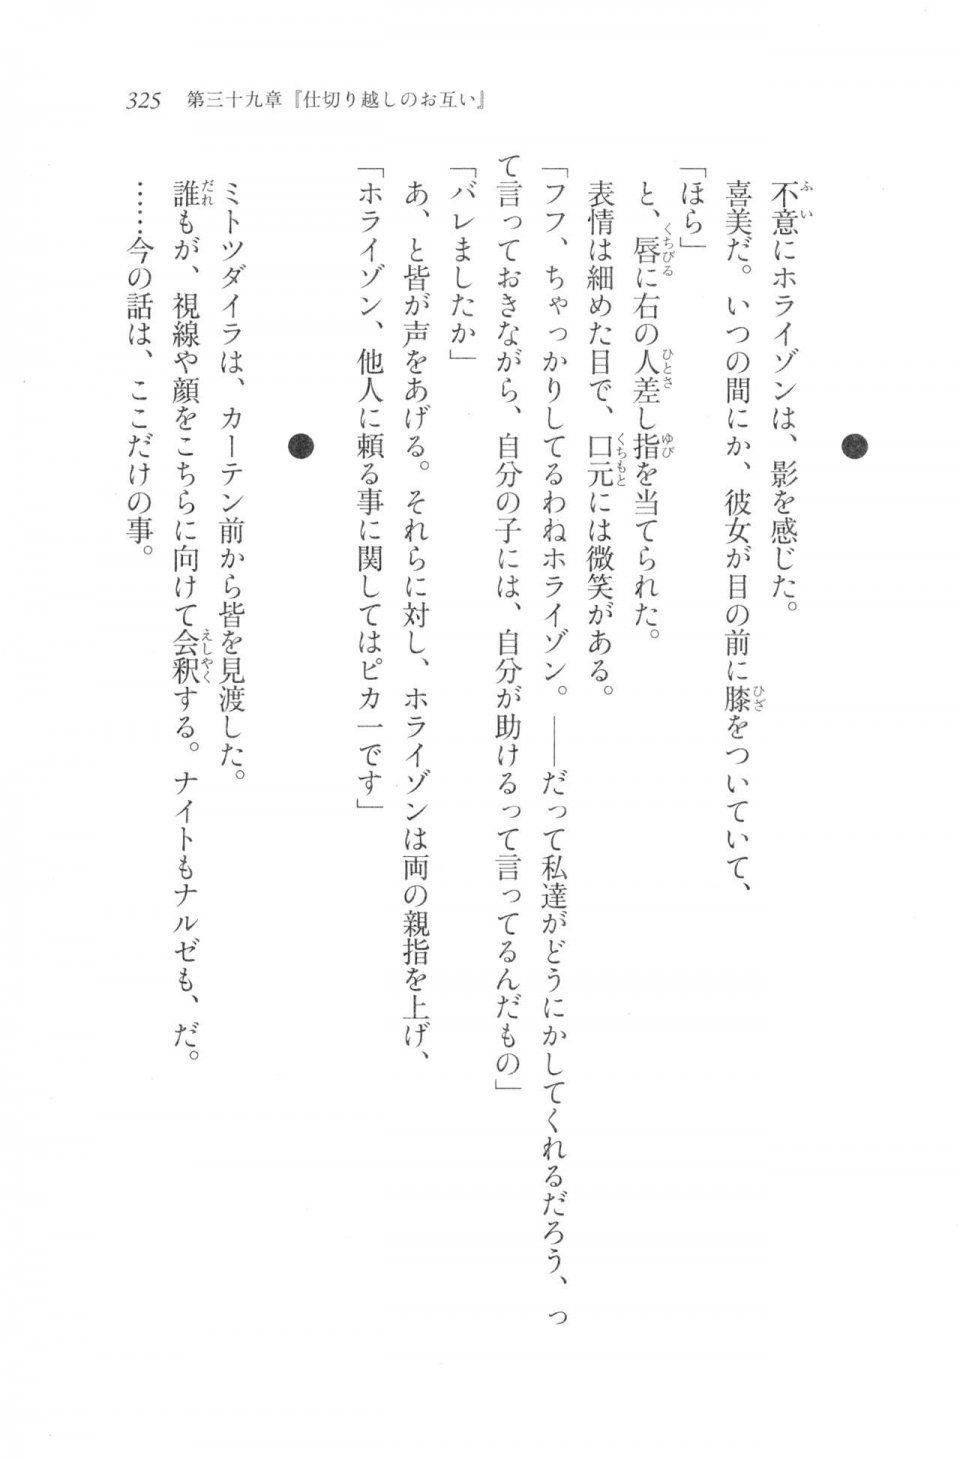 325　第三十九章『仕切り越しのお互い』
●
不意にホライゾンは、影を感じた。
喜美だ。いつの間にか、彼女が目の前に膝をついていて、
「ほら」
と、唇に右の人差し指を当てられた。
表情は細めた目で、口元には微笑がある。
「フフ、ちゃっかりしてるわねホライゾン。――だって私達がどうにかしてくれるだろう、っ
て言っておきながら、自分の子には、自分が助けるって言ってるんだもの」
「バレましたか」
あ、と皆が声をあげる。それらに対し、ホライゾンは両の親指を上げ、
「ホライゾン、他人に頼る事に関してはピカ一です」
●
ミトツダイラは、カーテン前から皆を見渡した。
誰もが、視線や顔をこちらに向けて会釈する。ナイトもナルゼも、だ。
……今の話は、ここだけの事。